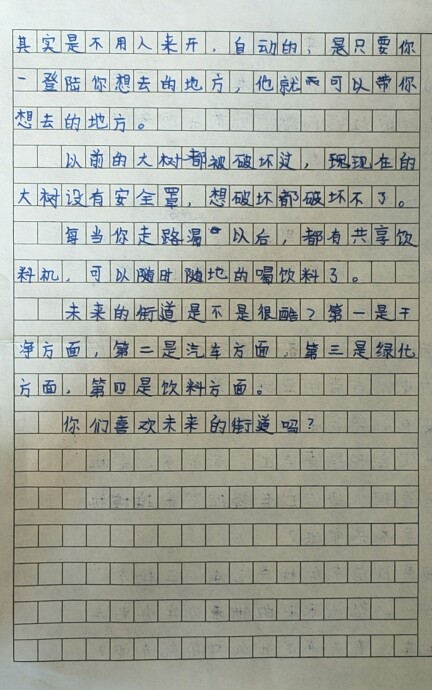 其实是不用人来开，自动的，是只要你
一登陆你想去的地方，他就可以带你
想去的地方。
以前的大树都被破坏过，现在的
大树设有安全罩，想破坏都破坏不了。
每当你走路渴以后，都有共享饮
料机，可以随时随地的喝饮料了。
未来的街道是不是很酷？第一是干
净方面，第二是汽车方面，第三是绿化
方面，第四是饮料方面。
你们喜欢未来的街道吗？